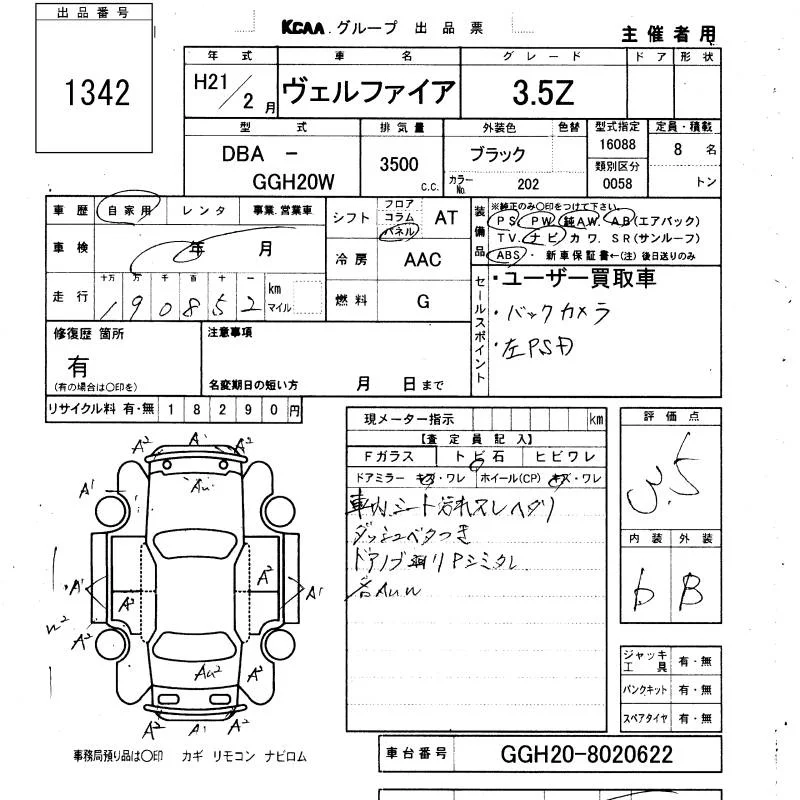 出品番号
1342
KCAA.グループ 出品票
主催者用
年式 車名 グレード ドア 形状
H21/2月 ヴェルファイア 3.5Z
型式 排気量 外装色 色替 型式指定 定員・積載
DBA - GGH20W 3500 c.c. ブラック 16088 8名
カラーNo. 202 類別区分 0058 トン
車歴 自家用 レンタ 事業.営業車
車検 年 月
走行 十万 万 千 百 十 一 km マイル
190852
シフト フロア コラム パネル AT
冷房 AAC
燃料 G
装備品
※純正のみ〇印をつけて下さい。
PS PW 純AW. AB(エアバック)
TV. ナビ カワ. SR(サンルーフ)
ABS・ 新車保証書←(注)後日送りのみ
セールスポイント
・ユーザー買取車
・バックカメラ
・左PSD
修復歴 箇所
有
(有の場合は〇印を)
注意事項
名変期日の短い方 月 日まで
リサイクル料 有・無 18290円
現メーター指示 km
【査定員記入】
Fガラス トビ石 ヒビワレ
ドアミラー キズ・ワレ ホイール(CP) キズ・ワレ
車内シート汚れスレヘタリ
ダッシュベタつき
評価点
3.5
内装 外装
b B
A² A¹ A²
A¹ Au
A¹ A² A² A¹
A² Au² A²
A² A¹ A²
ジャッキ工具 有・無
パンクキット 有・無
スペアタイヤ 有・無
事務局預り品は〇印 カギ リモコン ナビロム
車台番号 GGH20-8020622